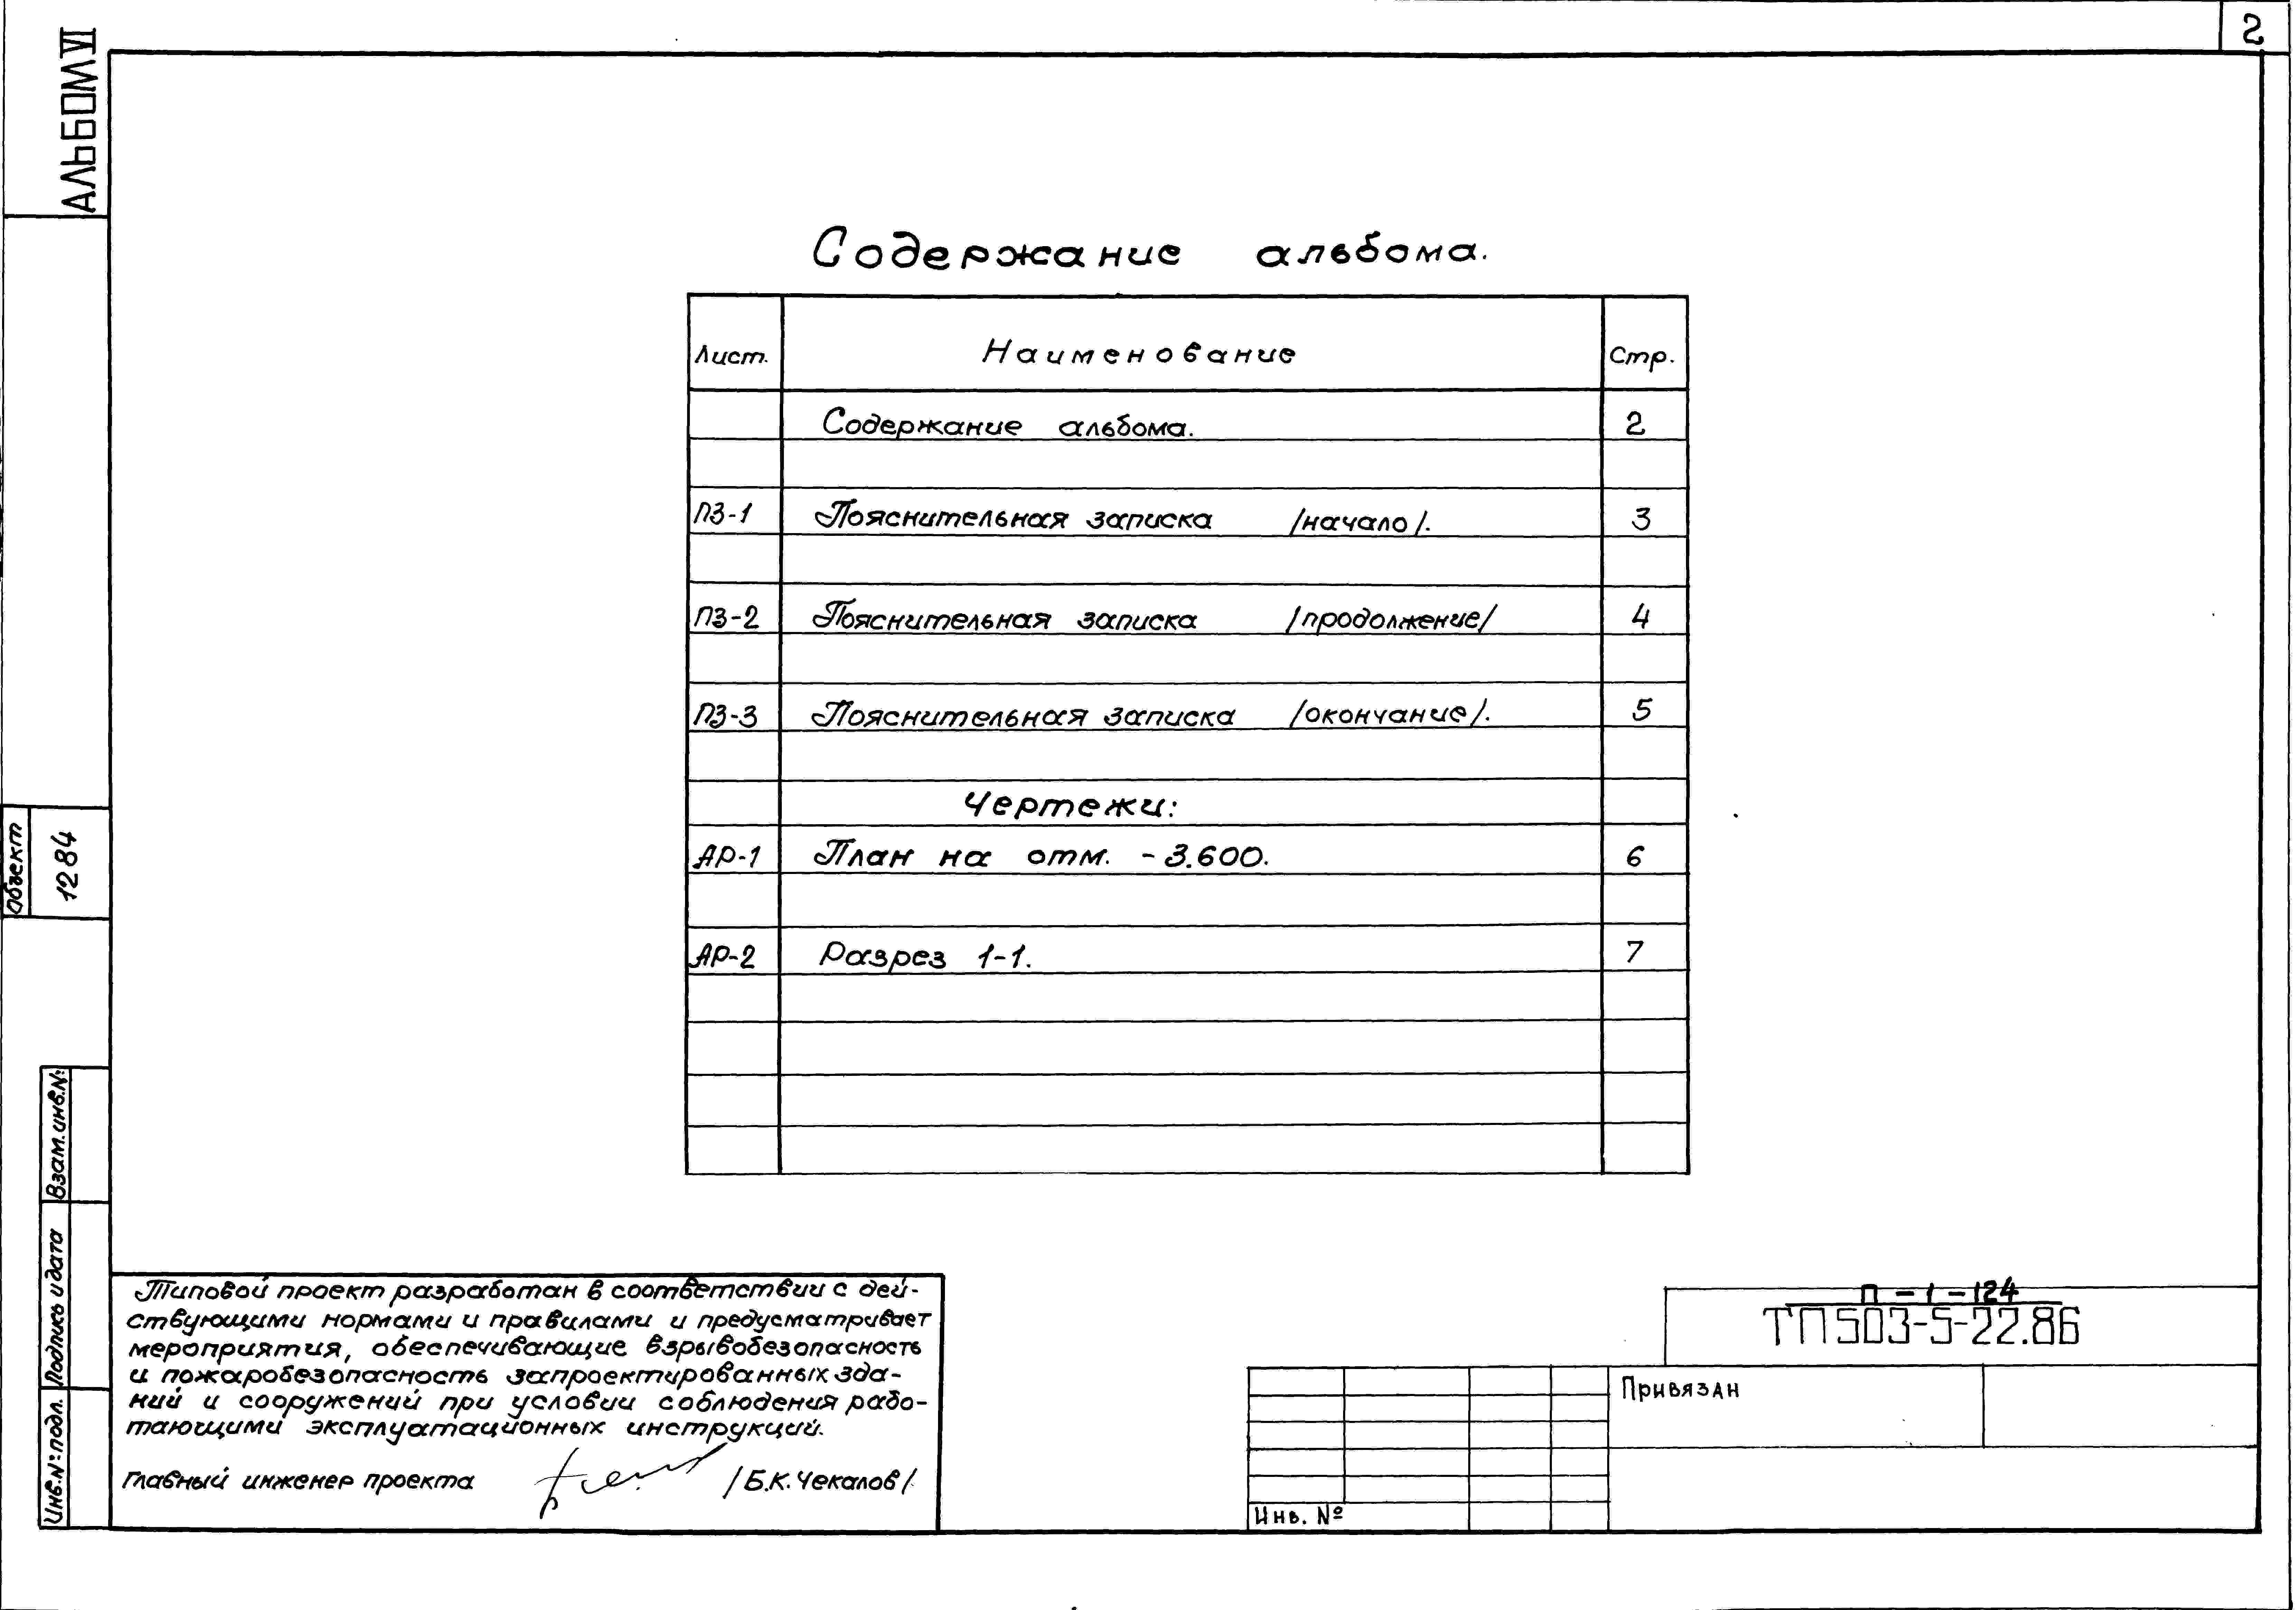 2
АЛЬБОМ VI
Содержание альбома.
Лист. Наименование Стр.
Содержание альбома. 2
ПЗ-1 Пояснительная записка /начало/. 3
ПЗ-2 Пояснительная записка /продолжение/ 4
ПЗ-3 Пояснительная записка /окончание/. 5
Чертежи:
АР-1 План на отм. -3.600. 6
АР-2 Разрез 1-1. 7
Объект
1284
Взам.инв.№
Подпись и дата
Инв.№ подл.
Типовой проект разработан в соответствии с дей-
ствующими нормами и правилами и предусматривает
мероприятия, обеспечивающие взрывобезопасность
и пожаробезопасность запроектированных зда-
ний и сооружений при условии соблюдения рабо-
тающими эксплуатационных инструкций.
Главный инженер проекта /Б.К.Чекалов/.
П-1-124
ТП 503-5-22.86
Привязан
Инв. №